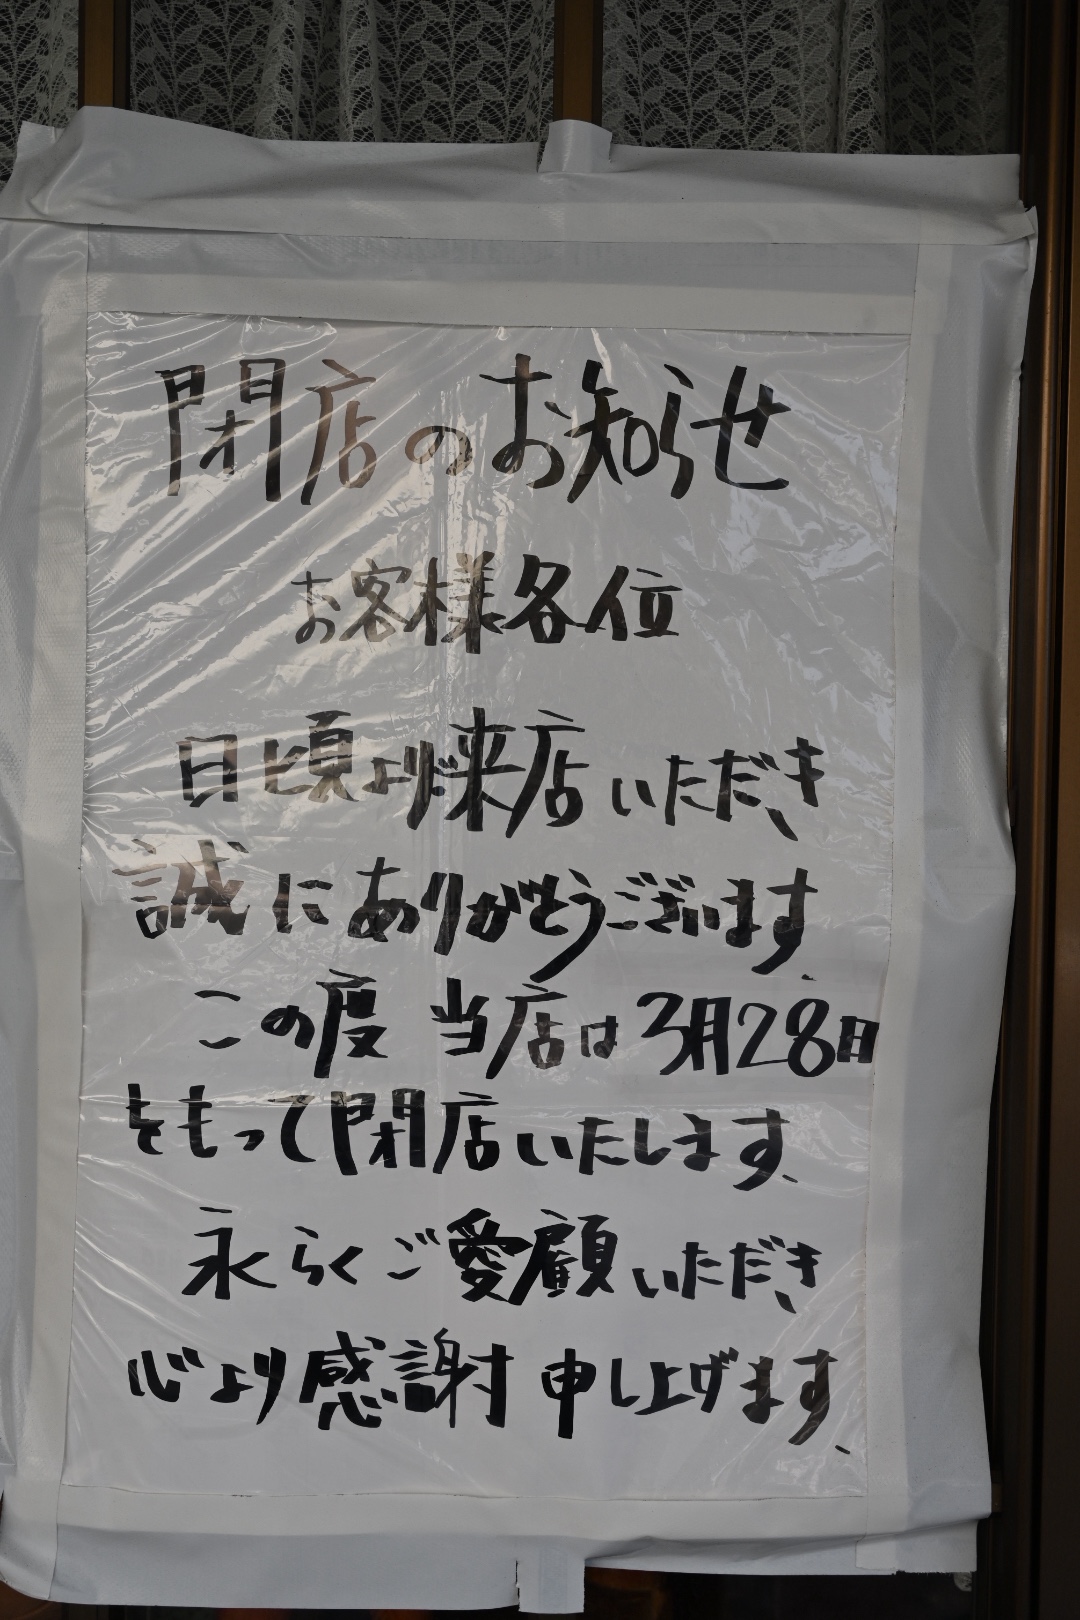 閉店のお知らせ
お客様各位
日頃より来店いただき
誠にありがとうございます、
この度 当店は3月28日
をもって閉店いたします、
永らくご愛顧いただき
心より感謝申し上げます、